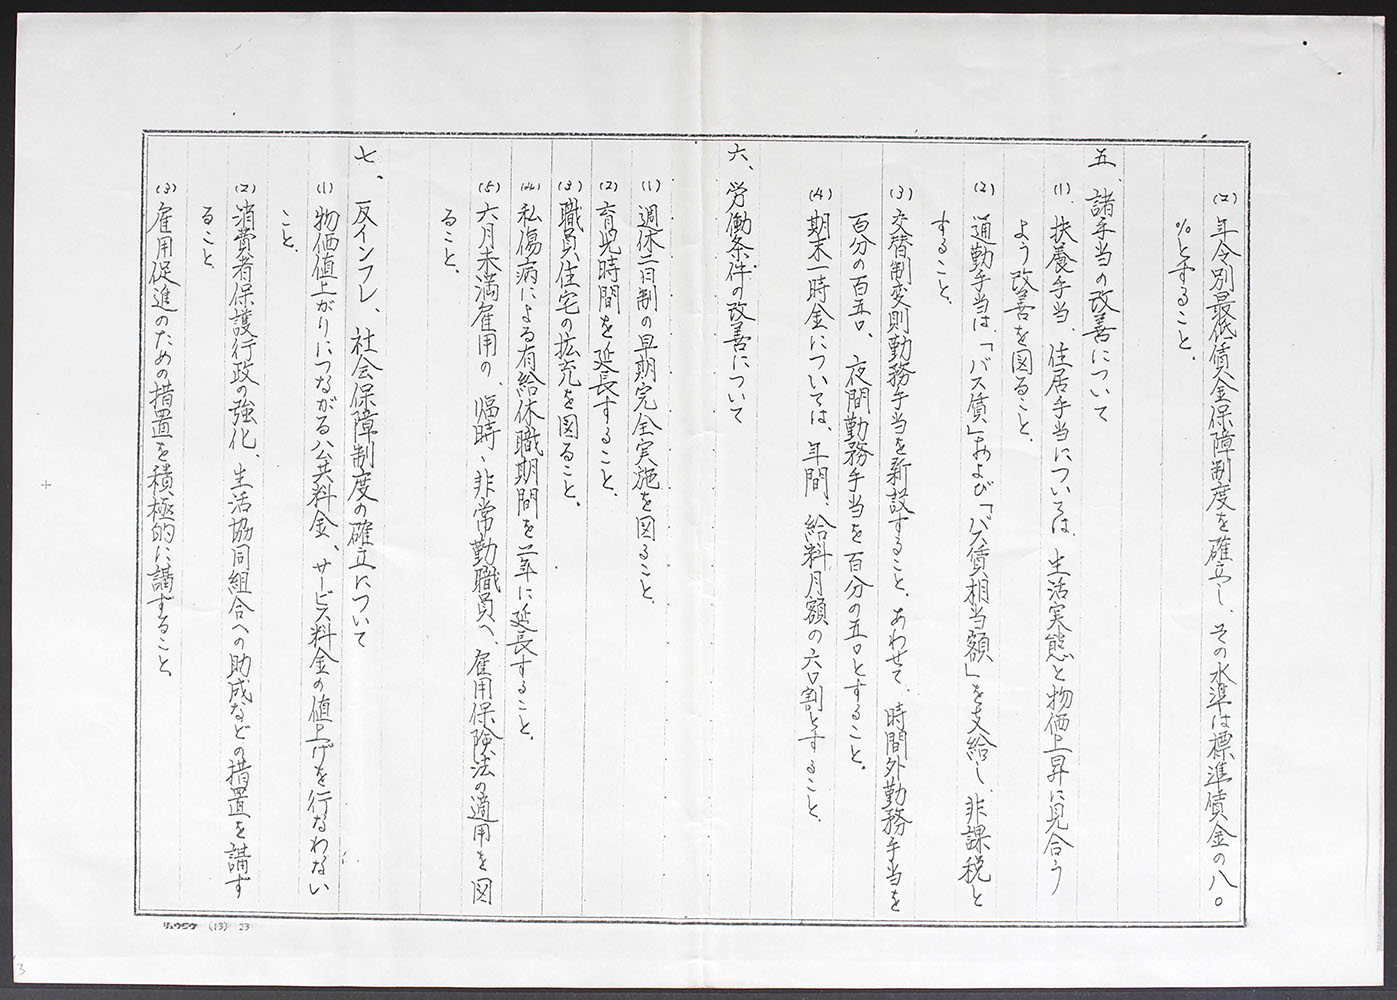 (2) 年令別最低賃金保障制度を確立し、その水準は標準賃金の八〇
%とすること、
五、諸手当の改善について
(1) 扶養手当、住居手当については、生活実態と物価上昇に見合う
よう改善を図ること、
(2) 通勤手当は、「バス賃」および「バス賃相当額」を支給し、非課税と
すること、
(3) 交替制変則勤務手当を新設すること、あわせて、時間外勤務手当を
百分の百五〇、夜間勤務手当を百分の五〇とすること、
(4) 期末一時金については、年間、給料月額の六〇割とすること、
六、労働条件の改善について
(1) 週休二日制の早期完全実施を図ること、
(2) 育児時間を延長すること、
(3) 職員住宅の拡充を図ること、
(4) 私傷病による有給休職期間を二年に延長すること、
(5) 六月未満雇用の、臨時、非常勤職員へ、雇用保険法の適用を図
ること、
七、反インフレ、社会保障制度の確立について
(1) 物価値上がりにつながる公共料金、サービス料金の値上げを行なわない
こと、
(2) 消費者保護行政の強化、生活協同組合への助成などの措置を講ず
ること、
(3) 雇用促進のための措置を積極的に講ずること、
リュウジケ (13) 23
3